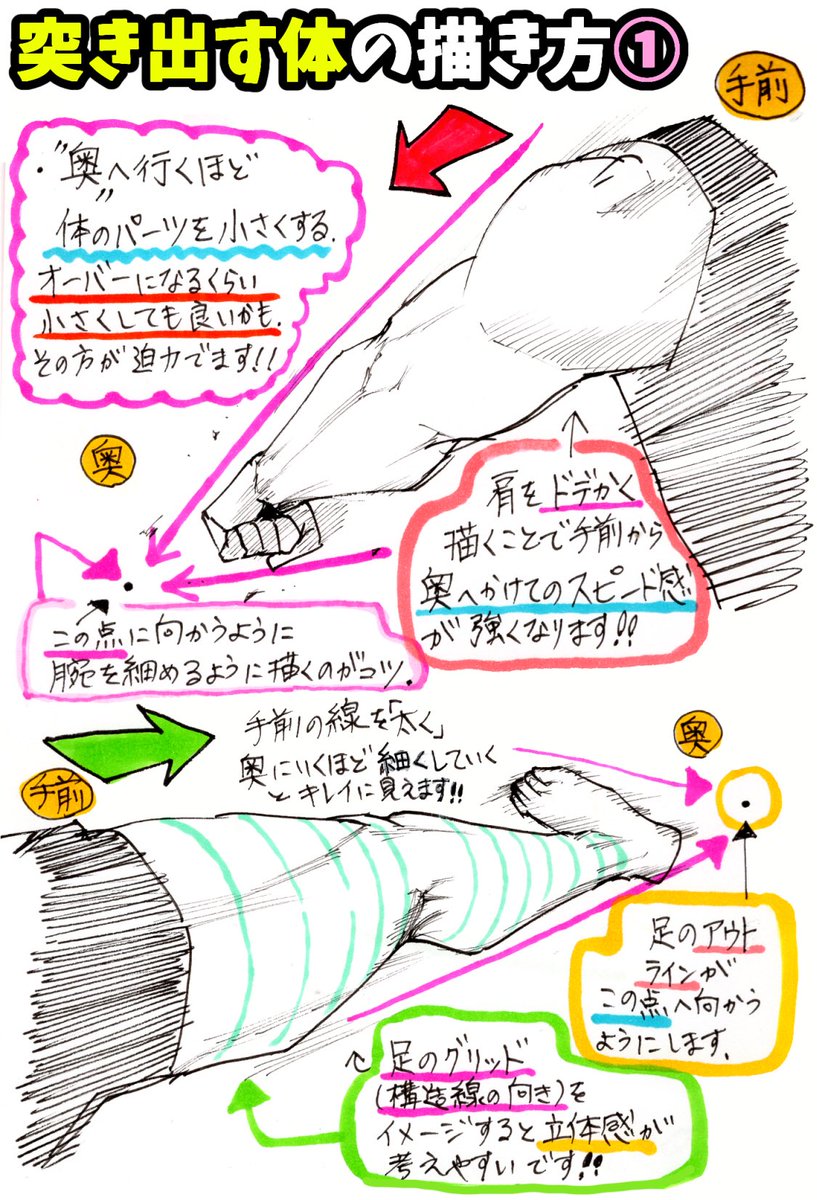 突き出す体の描き方①
手前
・"奥へ行くほど"
体のパーツを小さくする.
オーバーになるくらい
小さくしても良いかも.
その方が迫力でます!!
奥
肩をドデかく
描くことで手前から
奥へかけてのスピード感
が強くなります!!
この点に向かうように
腕を細めるように描くのがコツ.
手前の線を「太く」
奥にいくほど細くしていく
とキレイに見えます!!
奥
手前
足のアウト
ラインが
この点へ向かう
ようにします.
足のグリッド
(構造線の向き)を
イメージすると立体感が
考えやすいです!!